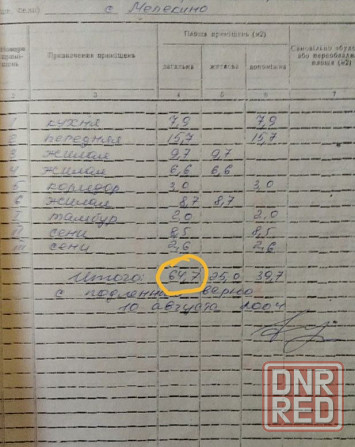 с Мелекино
Площа приміщень (м2)
Призначення приміщень
загальна житлова допоміжна
2 3 4 5 6 7
1 кухня 7,9 7,9
2 передняя 15,7 15,7
3 жилая 9,7 9,7
4 жилая 6,6 6,6
5 коридор 3,0 3,0
6 жилая 8,7 8,7
I тамбур 2,0 2,0
II сени 8,5 8,5
III сени 2,6 2,6
Итого: 64,7 25,0 39,7
с подленным верно
10 августа 2004
DNR
RED